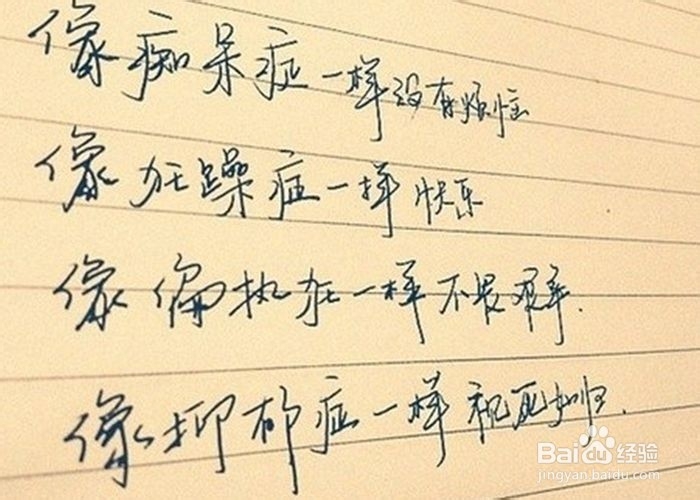 像痴呆症一样没有烦恼
像狂躁症一样快乐
像偏执狂一样不畏艰难.
像抑郁症一样视死如归.
Baidu经验
jingyan.baidu.com